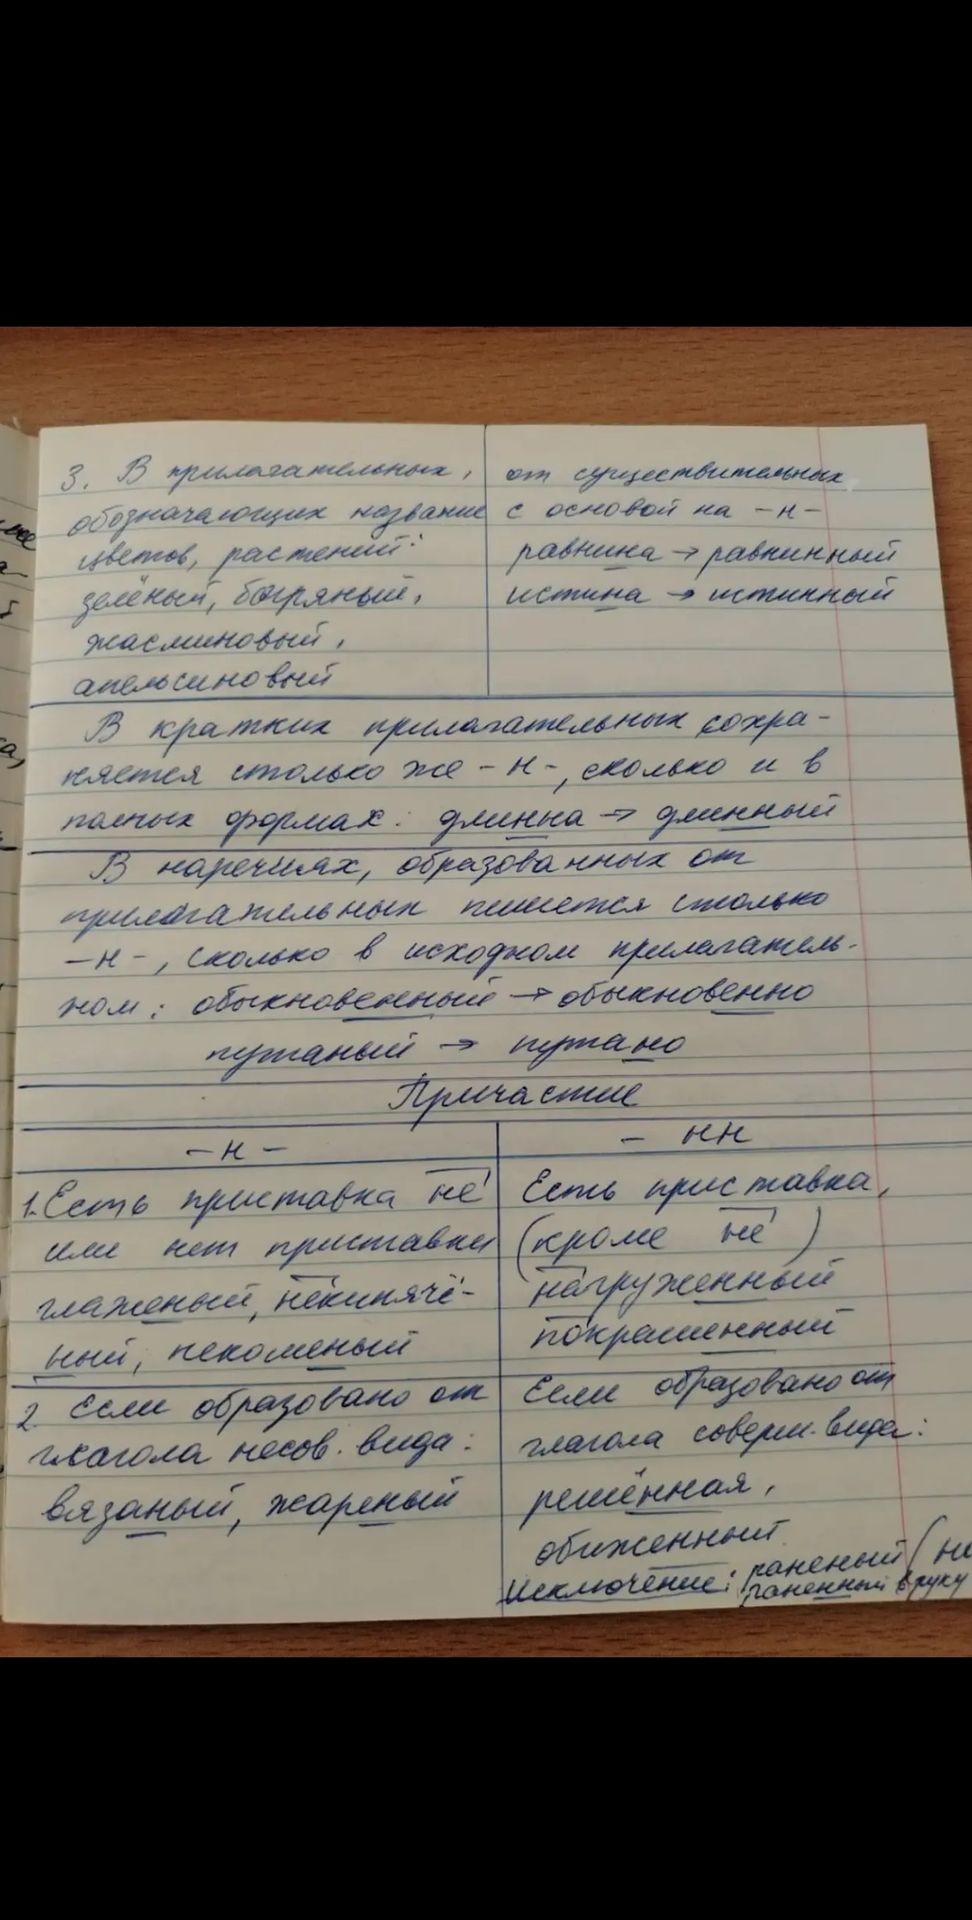 3. В прилагательных,
обозначающих название
цветов, растений:
зелёный, багряный,
жасминовый,
апельсиновый
от существительных
с основой на -н-
равнина → равнинный
истина → истинный
В кратких прилагательных сохра-
няется столько же -н-, сколько и в
полных формах: длинна → длинный
В наречиях, образованных от
прилагательных пишется столько
-н-, сколько в исходном прилагатель-
ном: обыкновенный → обыкновенно
путаный → путано
Причастие
-н-
1. Есть приставка не
или нет приставки
глаженый, некипячё-
ный, некошеный
2. Если образовано от
глагола несов. вида:
вязаный, жареный
- нн
Есть приставка,
(кроме не)
нагруженный
покрашенный
Если образовано от
глагола соверш. вида:
решённая,
обиженный
Исключение: раненый (но
раненный в руку